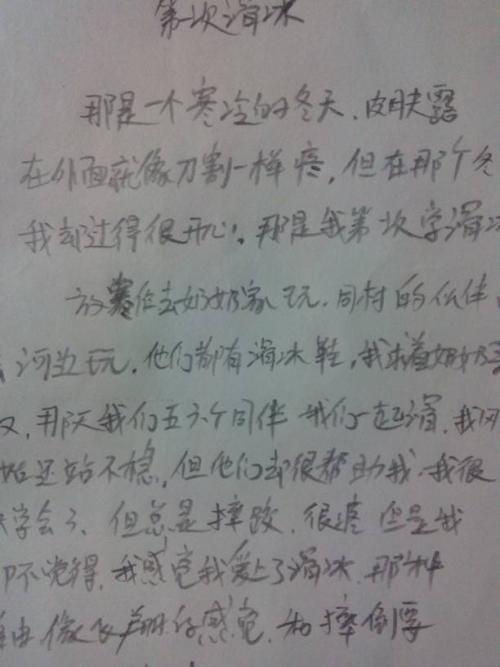 第一次滑冰
那是一个寒冷的冬天,皮肤露
在外面就像刀割一样疼,但在那个冬
我却过得很开心,那是我第一次学滑冰
放寒假去奶奶家玩,同村的伙伴
河边玩,他们都有滑冰鞋,我求着奶奶
又,那天我们五六个同伴 我们一起滑,我
始还站不稳,但他们却很帮助我,我很
学会了,但总是摔跤,很疼 但是我
不觉得,我感觉我爱上了滑冰,那种
由像飞翔的感觉,和摔倒